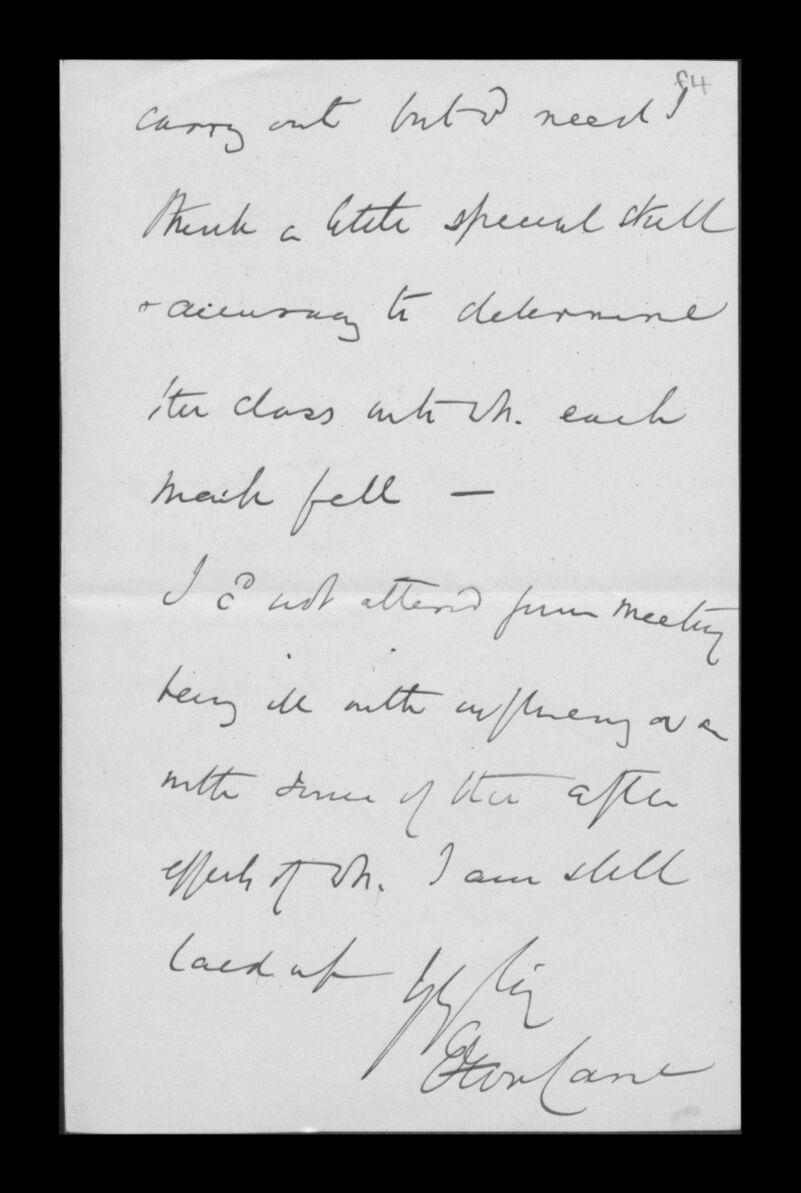 f4
carry out but wd need I
think a little special skill
+ accuracy to determine
the class into wh. each
mark fell —
I cd not attend yr meeting
being ill with influenza or
with some of the after
effects of wh. I am still
laid up